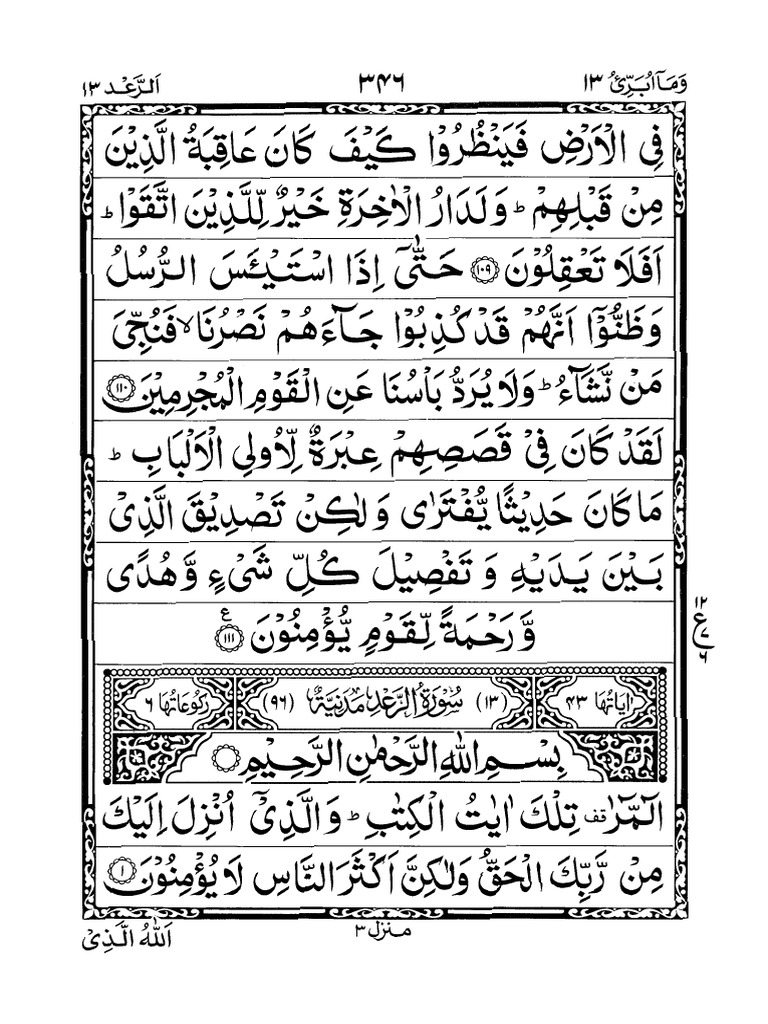 وَمَآ اُبَرِّئُ ١٣ ٣۴۶ اَلرَّعْد ١٣
فِي الْاَرْضِ فَيَنْظُرُوْا كَيْفَ كَانَ عَاقِبَةُ الَّذِيْنَ
مِنْ قَبْلِهِمْ ؕ وَلَدَارُ الْاٰخِرَةِ خَيْرٌ لِّلَّذِيْنَ اتَّقَوْا ؕ
اَفَلَا تَعْقِلُوْنَ ﴿١٠٩﴾ حَتّٰىٓ اِذَا اسْتَيْـَٔسَ الرُّسُلُ
وَظَنُّوْٓا اَنَّهُمْ قَدْ كُذِبُوْا جَآءَهُمْ نَصْرُنَا ۙ فَنُجِّيَ
مَنْ نَّشَآءُ ؕ وَلَا يُرَدُّ بَاْسُنَا عَنِ الْقَوْمِ الْمُجْرِمِيْنَ ﴿١١٠﴾
لَقَدْ كَانَ فِيْ قَصَصِهِمْ عِبْرَةٌ لِّاُولِي الْاَلْبَابِ ؕ
مَا كَانَ حَدِيْثًا يُّفْتَرٰى وَلٰكِنْ تَصْدِيْقَ الَّذِيْ
بَيْنَ يَدَيْهِ وَ تَفْصِيْلَ كُلِّ شَيْءٍ وَّهُدًى
وَّ رَحْمَةً لِّقَوْمٍ يُّؤْمِنُوْنَ ﴿١١١﴾ ع
١٢
ع
٧
۶
اٰيَاتُهَا ۴٣ (١٣) سُوْرَةُ الرَّعْدِ مَدَنِيَّةٌ (٩۶) رَكُوْعَاتُهَا ۶
بِسْمِ اللّٰهِ الرَّحْمٰنِ الرَّحِيْمِ
الٓمّٓرٰ قف تِلْكَ اٰيٰتُ الْكِتٰبِ ؕ وَالَّذِيْٓ اُنْزِلَ اِلَيْكَ
مِنْ رَّبِّكَ الْحَقُّ وَلٰكِنَّ اَكْثَرَ النَّاسِ لَا يُؤْمِنُوْنَ ﴿١﴾
منزل ٣
اَللّٰهُ الَّذِيْ